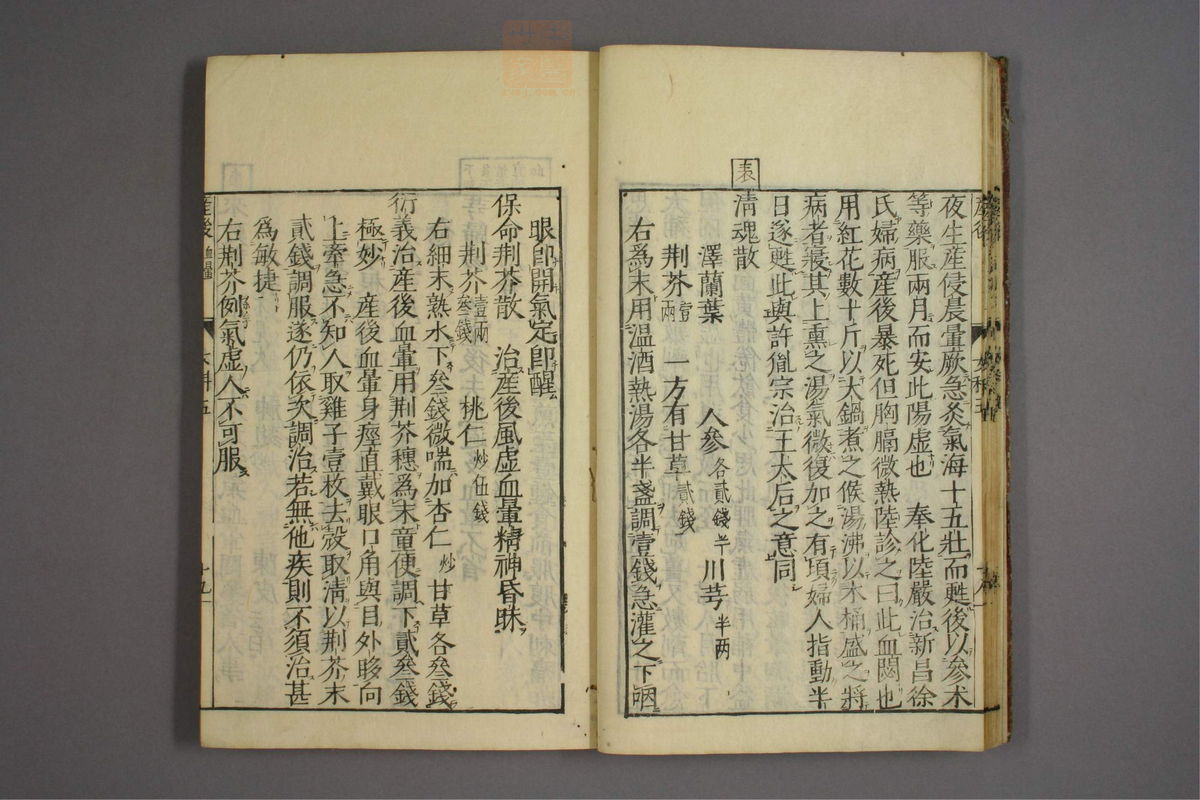 夜生産侵晨暈厥急灸氣海十五壯而甦後以參术
等藥服兩月而安此陽虛也　奉化陸嚴治新昌徐
氏婦病產後暴死但胸膈微熱陸診之曰此血悶也
用紅花數十斤以大鍋煮之候湯沸以木桶盛之將
病者寢其上熏之湯氣微復加之有頃婦人指動半
日遂甦此與許胤宗治王太后之意同
表
清魂散
澤蘭葉　人參各貳錢半　川芎半兩
荆芥壹兩　一方有甘草貳錢
右爲末用溫酒熱湯各半盞調壹錢急灌之下咽
眼卽開氣定卽醒
保命荆芥散　治産後風虛血暈精神昏昧
荆芥壹兩叁錢　桃仁炒伍錢
右細末熟水下叁錢微喘加杏仁炒甘草各叁錢
衍義治産後血暈用荆芥穗爲末童便調下貳叁錢
極妙　産後血暈身痙直戴眼口角與目外眵向
上牽急不知人取雞子壹枚去殼取清以荆芥末
貳錢調服遂仍依次調治若無他疾則不須治甚
爲敏捷
右荆芥例氣虛人不可服
産後